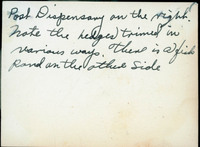 Post Dispensary on the right.
Note the hedges trimed in
various ways. There is a fish
Pond on the other side